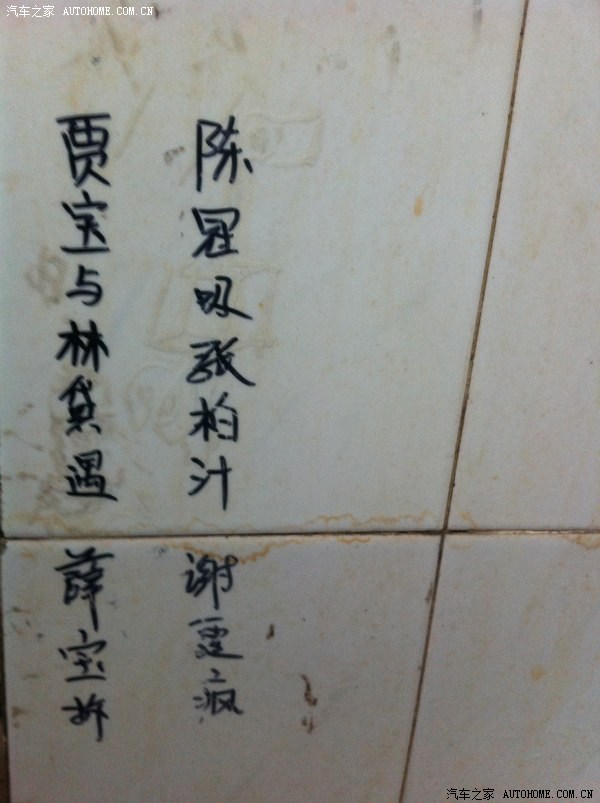 汽车之家 AUTOHOME.COM.CN
陈冠吸张柏汁 谢霆上疯
贾宝与林黛遇 薛宝拆
汽车之家 AUTOHOME.COM.CN